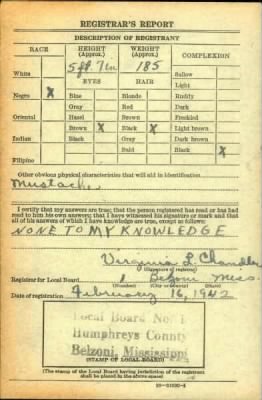 REGISTRAR'S REPORT
DESCRIPTION OF REGISTRANT
RACE HEIGHT (Approx.) WEIGHT (Approx.) COMPLEXION
5 ft. 7 in 185
White Sallow
EYES HAIR Light
Negro X Blue Blonde Ruddy
Gray Red Dark
Oriental Hazel Brown Freckled
Brown X Black X Light brown
Indian Black Gray Dark brown
Bald Black X
Filipino
Other obvious physical characteristics that will aid in identification
Mustache
I certify that my answers are true; that the person registered has read or has had
read to him his own answers; that I have witnessed his signature or mark and that
all of his answers of which I have knowledge are true, except as follows:
NONE TO MY KNOWLEDGE
Virginia L. Chandler
(Signature of registrar)
Registrar for Local Board 1 Belzoni Miss.
(Number) (City or county) (State)
Date of registration February 16, 1942
Local Board No. 1
Humphreys County
Belzoni, Mississippi
(STAMP OF LOCAL BOARD)
(The stamp of the Local Board having jurisdiction of the registrant
shall be placed in the above space)